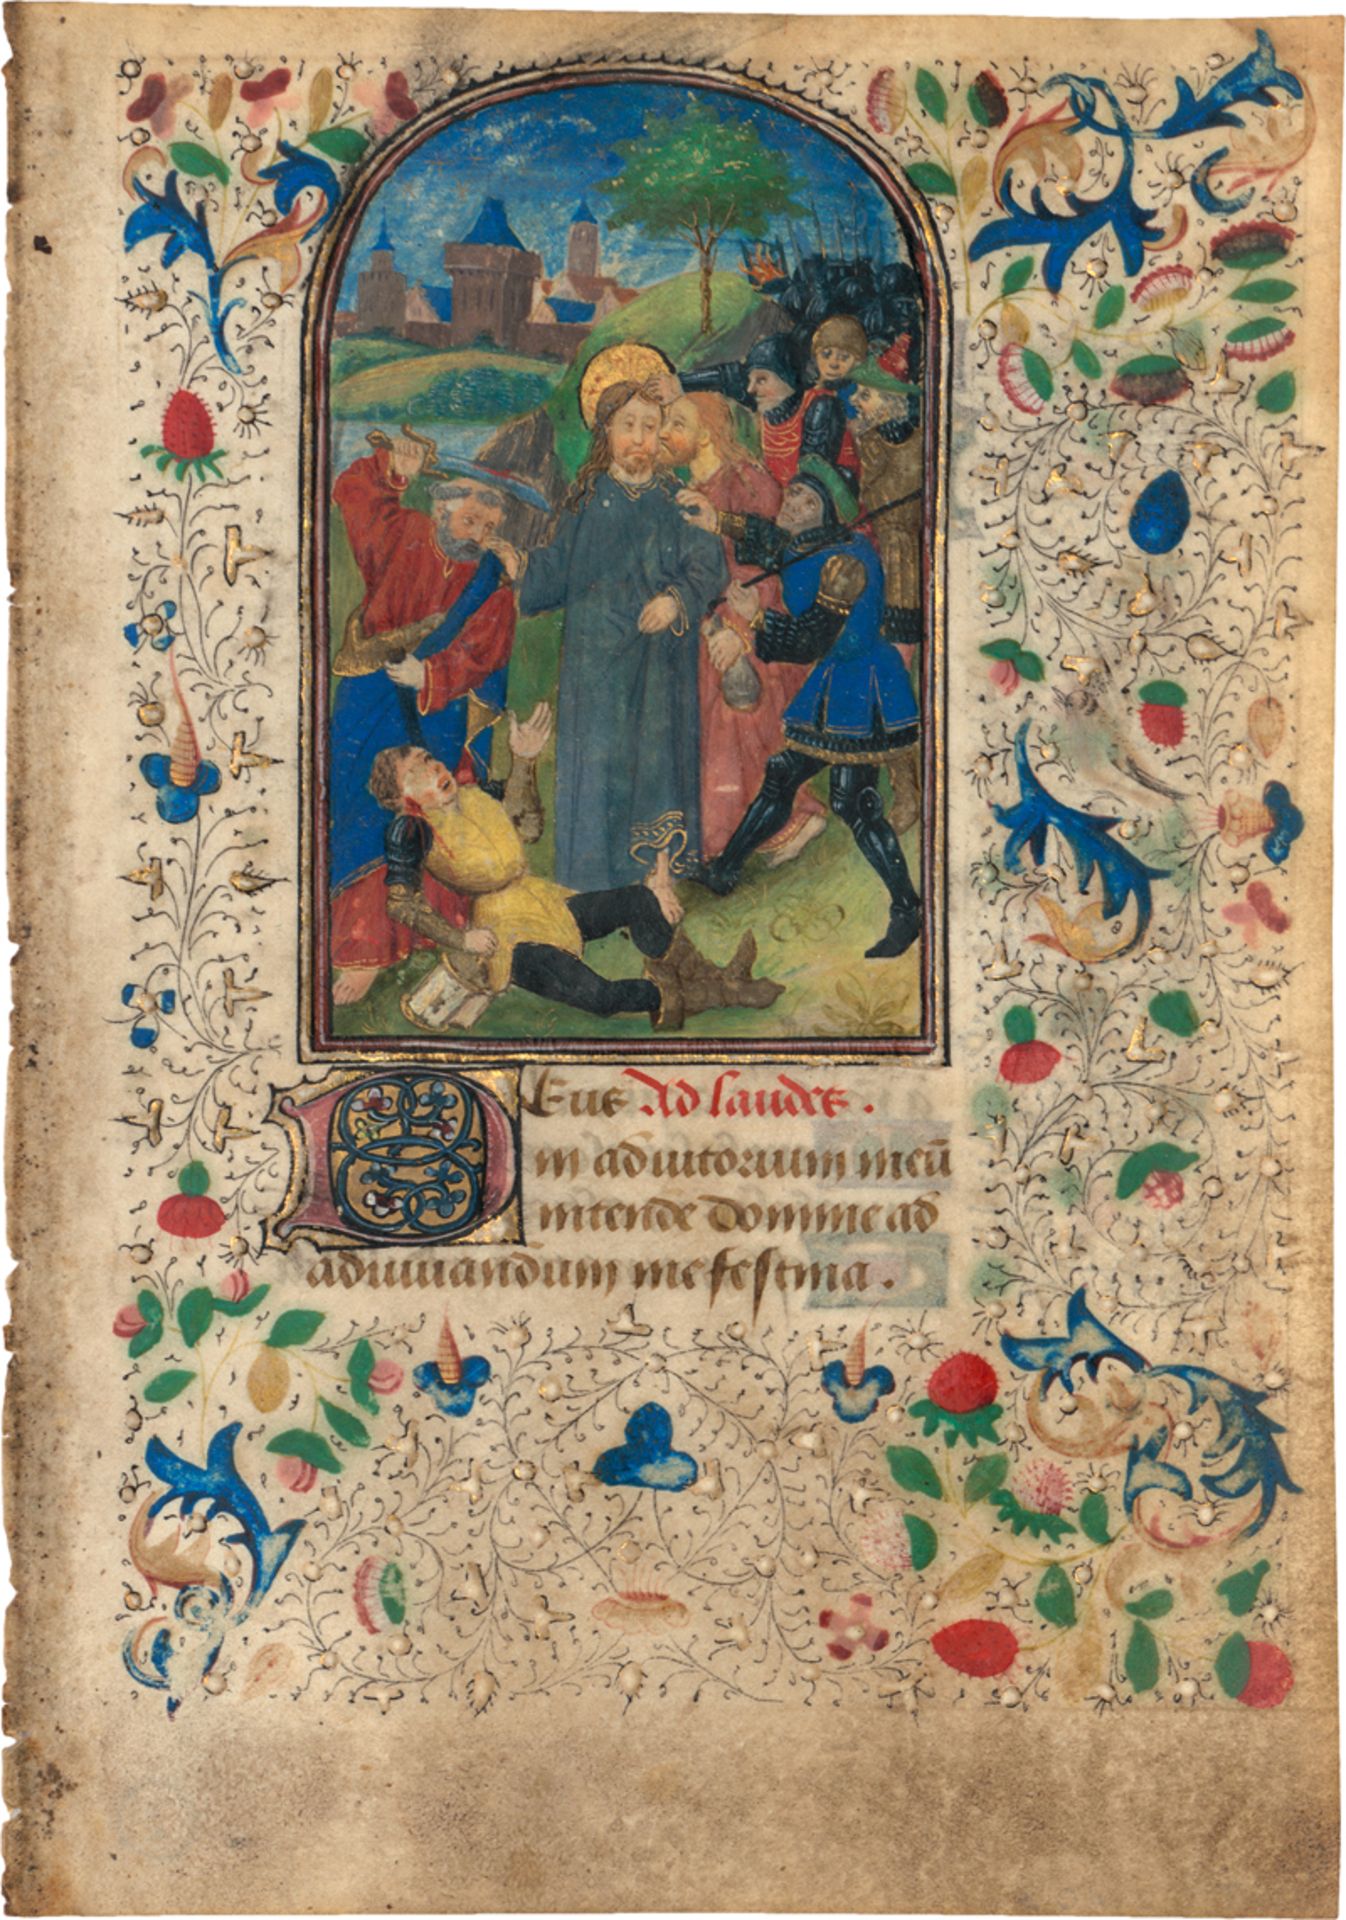 Deus Ad laudes.
in adiutorium meū
intende domine ad
adiuuandum me festina.